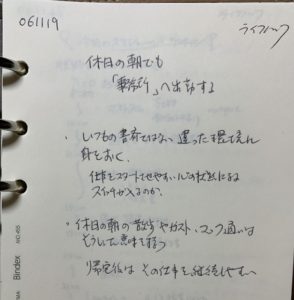 061119
ライフハック
休日の朝でも
「事務所」へ出勤する
・いつもの書斎ではない違った環境に
身をおく、
仕事をスタートさせやすい心の状態になる
スイッチが入るのか、
・休日の朝の散歩やガスト、マック通いは
そうした意味を持つ
帰宅後はその仕事を継続しやすい
Bindex
NO.455